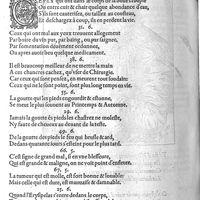 CEVLX qui ont dans le corps de la boue croupie
Ou entre cuir & chair quelque abondance d'eau,
S'ils sont cauterisez, ou taillez au cousteau,
Et deschargez à coup, ils en perdent la vie.
31. 6.
Ceux qui ont mal aux yeux trouuent allegement
Par boire du vin pur, par baing, ou par saignee,
Par fomentation deuëment ordonnee,
Ou apres auoir beu quelque medicament.
38. 6.
Il est beaucoup meilleur de ne mettre la main
A ces chancres cachez, qu'vser de Chirurgie.
Car ceux qui sont pensez, en meurent tout soudain:
Ceux qui ne le sont point, sont plus long temps en vie.
55. 6.
La goutte qui les pieds engourdit & estonne,
Se meut le plus souuent au Printemps & Autonne.
28. 6.
Iamais la goutte és pieds les chastrez ne moleste,
Ny faute de cheueux au deuant de la teste.
49. 6.
De la goutte des pieds le feu qui brusle & ard,
Dedans quarante iours s'esteint pour le plus tard.
66. 5.
C'est signe de grand mal, si en vne blesseure,
Qui est grande & maligne, on ne voit point d'enfleure.
67. 5.
La tumeur qui est molle, est fort bonne & louable:
Mais celle qui est dure, est mauuaise & damnable.
25. 6.
Quand l'Erysipelas s'entre dedans le corps,